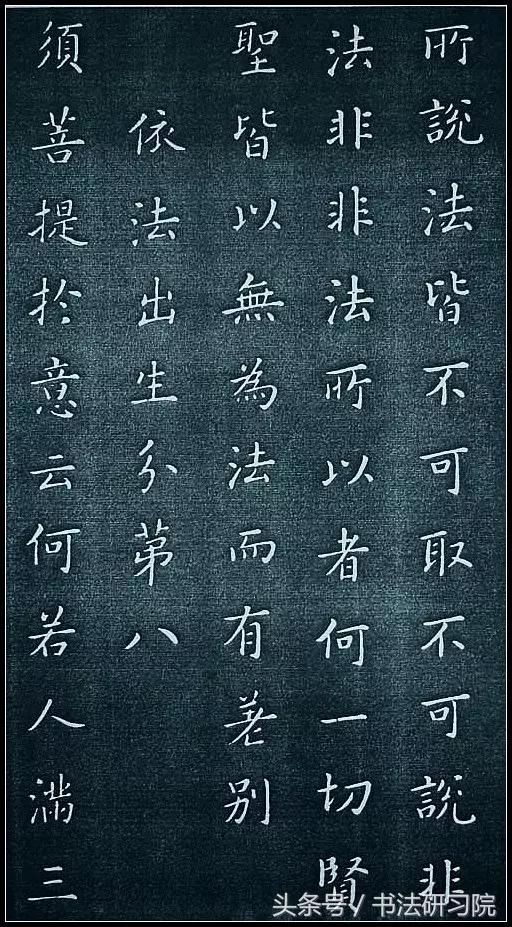 所說法皆不可取不可說非
法非非法所以者何一切賢
聖皆以無為法而有差別
依法出生分第八
須菩提於意云何若人滿三
头条号 / 书法研习院